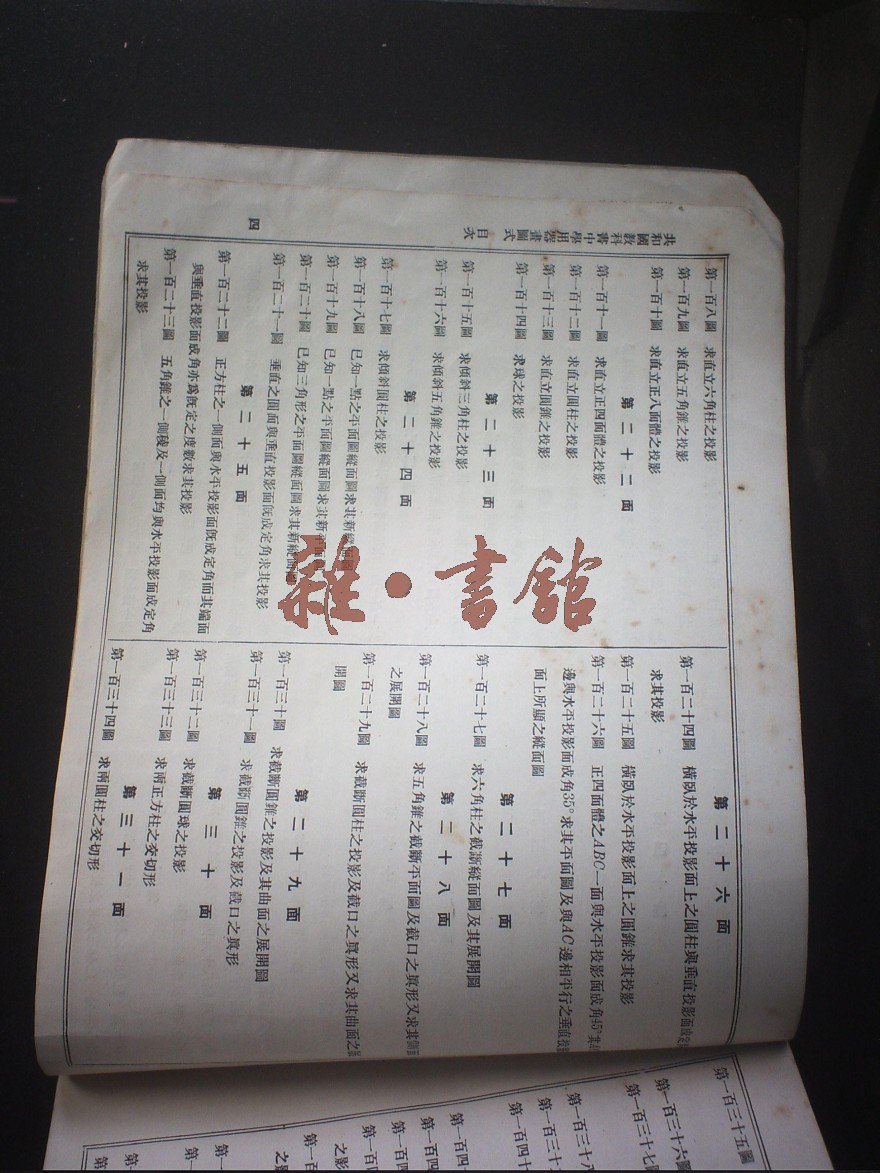 共和國教科書中學用器畫圖式
目次
四
第一百八圖 求直立六角柱之投影
第一百九圖 求直立五角錐之投影
第一百十圖 求直立正八面體之投影
第二十二面
第一百十一圖 求直立正四面體之投影
第一百十二圖 求直立圓柱之投影
第一百十三圖 求直立圓錐之投影
第一百十四圖 求球之投影
第二十三面
第一百十五圖 求傾斜三角柱之投影
第一百十六圖 求傾斜五角錐之投影
第二十四面
第一百十七圖 求傾斜圓柱之投影
第一百十八圖 已知一點之平面圖縱面圖求其新縱面圖
第一百十九圖 已知一點之平面圖縱面圖求其新平面圖
第一百二十圖 已知三角形之平面圖縱面圖求其新縱面圖
第一百二十一圖 垂直之圓面與垂直投影面旣成定角求其投影
第二十五面
第一百二十二圖 正方柱之一側面與水平投影面旣成定角而其端面
與垂直投影面成角亦爲旣定之度數求其投影
第一百二十三圖 五角錐之一側稜及一側面均與水平投影面成定角
求其投影
第二十六面
第一百二十四圖 橫臥於水平投影面上之圓柱與垂直投影面成定
求其投影
第一百二十五圖 橫臥於水平投影面上之圓錐求其投影
第一百二十六圖 正四面體之ABC一面與水平投影面成角45°其
邊與水平投影面成角35°求其平面圖及與AC邊相平行之垂直投影
面上所顯之縱面圖
第二十七面
第一百二十七圖 求六角柱之截斷縱面圖及其展開圖
第二十八面
第一百二十八圖 求五角錐之截斷平面圖及截口之眞形又求其側面
之展開圖
第一百二十九圖 求截斷圓柱之投影及截口之眞形又求其曲面之展
開圖
第二十九面
第一百三十圖 求截斷圓錐之投影及其曲面之展開圖
第一百三十一圖 求截斷圓錐之投影及截口之眞形
第三十面
第一百三十二圖 求截斷圓球之投影
第一百三十三圖 求兩正方柱之交切形
第三十一面
第一百三十四圖 求兩圓柱之交切形
第一百三十五圖
第一百三十六圖
第一百三十七圖
第一百三十八
雜·書館